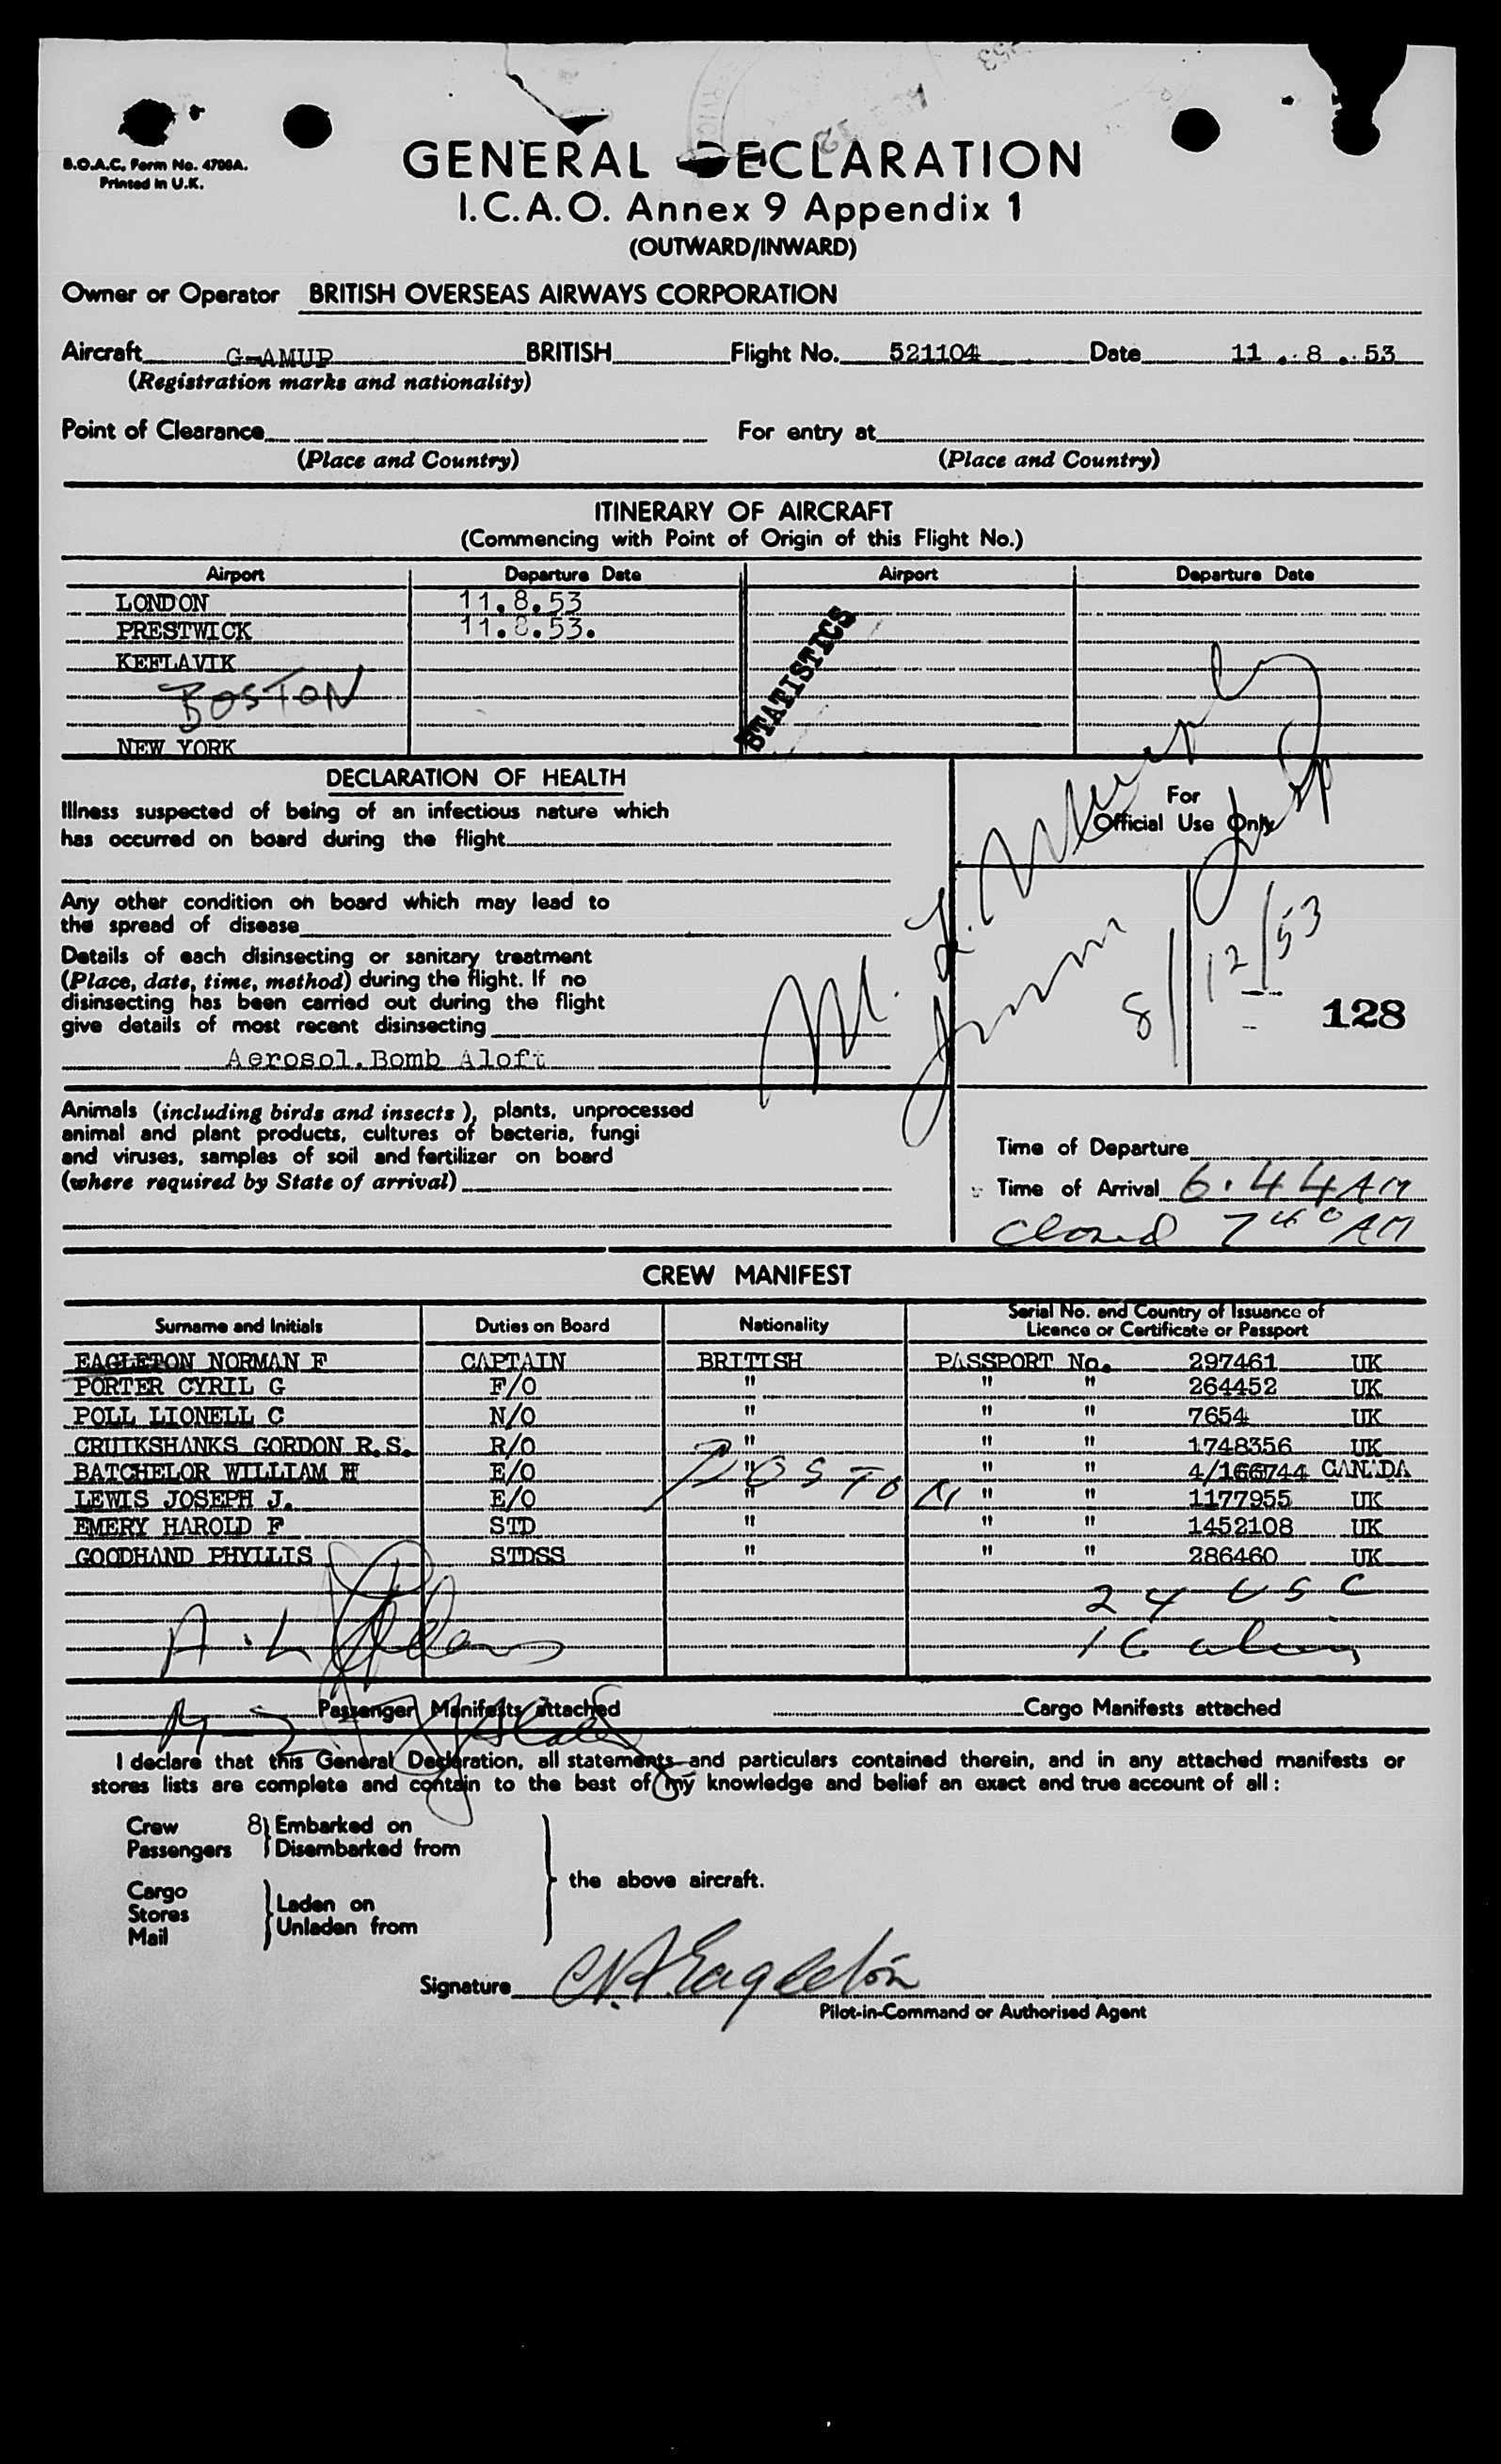 B.O.A.C. Form No. 4700A.
Printed in U.K.
GENERAL DECLARATION
I.C.A.O. Annex 9 Appendix 1
(OUTWARD/INWARD)
Owner or Operator BRITISH OVERSEAS AIRWAYS CORPORATION
Aircraft G-AMUP BRITISH Flight No. 521104 Date 11 . 8 . 53
(Registration marks and nationality)
Point of Clearance For entry at
(Place and Country) (Place and Country)
ITINERARY OF AIRCRAFT
(Commencing with Point of Origin of this Flight No.)
Airport Departure Date Airport Departure Date
LONDON 11.8.53
PRESTWICK 11.8.53.
KEFLAVIK
BOSTON
NEW YORK
STATISTICS
DECLARATION OF HEALTH
Illness suspected of being of an infectious nature which
has occurred on board during the flight
Any other condition on board which may lead to
the spread of disease
Details of each disinsecting or sanitary treatment
(Place, date, time, method) during the flight. If no
disinsecting has been carried out during the flight
give details of most recent disinsecting
Aerosol.Bomb Aloft
For
Official Use Only
8/12/53
128
Animals (including birds and insects), plants, unprocessed
animal and plant products, cultures of bacteria, fungi
and viruses, samples of soil and fertilizer on board
(where required by State of arrival)
Time of Departure
Time of Arrival 6.44 AM
Closed 7 40 AM
CREW MANIFEST
Surname and Initials Duties on Board Nationality Serial No. and Country of Issuance of
Licence or Certificate or Passport
EAGLETON NORMAN F CAPTAIN BRITISH PASSPORT No. 297461 UK
PORTER CYRIL G F/O " " " 264452 UK
POLL LIONELL C N/O " " " 7654 UK
CRUIKSHANKS GORDON R.S. R/O " " " 1748356 UK
BATCHELOR WILLIAM H E/O " " " 4/166744 CANADA
LEWIS JOSEPH J. E/O " " " 1177955 UK
EMERY HAROLD F STD " " " 1452108 UK
GOODHAND PHYLLIS STDSS " " " 286460 UK
BOSTON
24 USC
16 alien
Passenger Manifests attached Cargo Manifests attached
I declare that this General Declaration, all statements and particulars contained therein, and in any attached manifests or
stores lists are complete and contain to the best of my knowledge and belief an exact and true account of all :
Crew 8 Embarked on
Passengers Disembarked from
the above aircraft.
Cargo
Stores Laden on
Mail Unladen from
Signature N.F. Eagleton
Pilot-in-Command or Authorised Agent